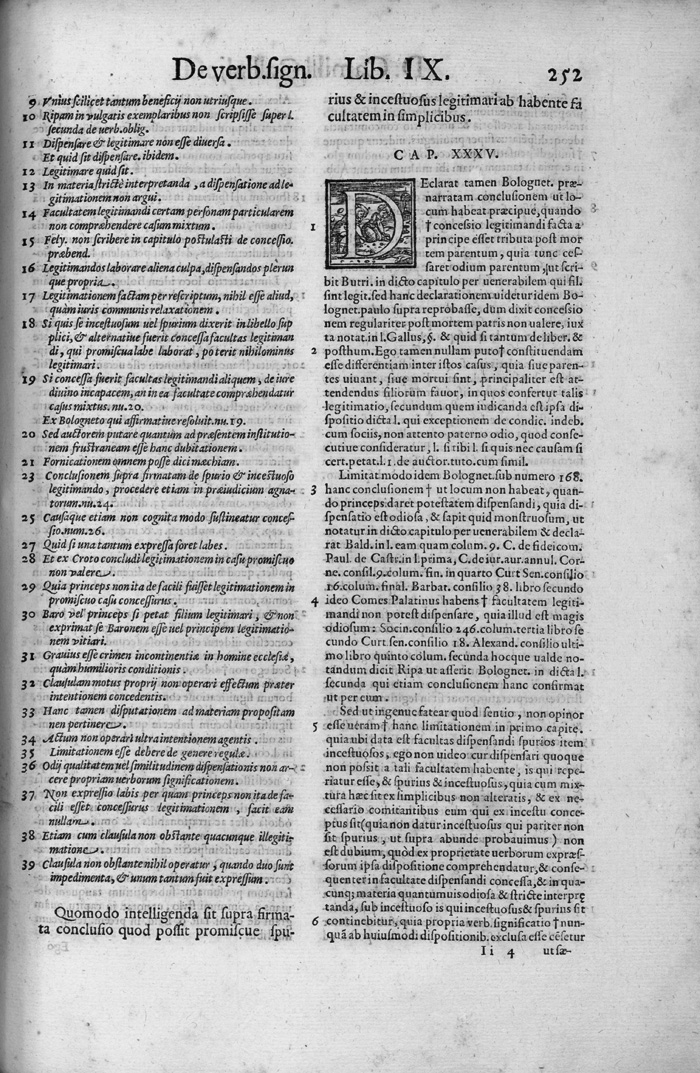 De verb.sign. Lib. IX. 252
9 Vnius scilicet tantum beneficij non utriusque.
10 Ripam in vulgatis exemplaribus non scripsisse super l.
secunda de uerb.oblig.
11 Dispensare & legitimare non esse diuersa.
Et quid sit dispensare. ibidem.
12 Legitimare quid sit.
13 In materia strictè interpretanda, a dispensatione ad le-
gitimationem non argui.
14 Facultatem legitimandi certam personam particularem
non comprahendere casum mixtum.
15 Fely. non scribere in capitulo postulasti de concessio.
præbend.
16 Legitimandos laborare aliena culpa, dispensandos plerun
que propria.
17 Legitimationem factam per rescriptum, nihil esse aliud,
quàm iuris communis relaxationem.
18 Si quis se incestuosum uel spurium dixerit in libello sup
plici, & alternatiue fuerit concessa facultas legitiman
di, qui promiscua labe laborat, poterit nihilominus
legitimari.
19 Si concessa fuerit facultas legitimandi aliquem, de iure
diuino incapacem, an in ea facultate comprahendatur
casus mixtus. nu.20.
Ex Bologneto qui affirmatiue resoluit. nu.19.
20 Sed auctorem putare quantum ad præsentem institutio-
nem frustraneam esse hanc dubitationem.
21 Fornicationem omnem posse dici mœchiam.
23 Conclusionem supra firmatam de spurio & incestuoso
legitimando, procedere etiam in præiudicium agna-
torum.nu.24.
25 Causaque etiam non cognita modo sustineatur conces-
sio.num.26.
27 Quid si una tantum expressa foret labes.
28 Et ex Croto concludi legitimationem in casu promiscuo
non valere.
29 Quia princeps non ita de facili fuisset legitimationem in
promiscuo casu concessurus.
30 Baro vel princeps si petat filium legitimari, & non
exprimat se Baronem esse uel principem legitimatio-
nem vitiari.
31 Grauius esse crimen incontinentiæ in homine ecclesiæ,
quàm humilioris conditionis.
32 Clausulam motus proprij non operari effectum præter
intentionem concedentis.
33 Hanc tamen disputationem ad materiam propositam
nen pertinere.
34 Actum non operari ultra intentionem agentis.
35 Limitationem esse debere de genere regulæ.
36 Odij qualitatem uel similitudinem dispensationis non ar-
cere propriam uerborum significationem.
37 Non expressio labis per quam princeps non ita de fa-
cili esset concessurus legitimationem, facit eam
nullam.
38 Etiam cum clausula non obstante quacunque illegiti-
matione.
39 Clausula non obstante nihil operatur, quando duo sunt
impedimenta, & unum tantum fuit expressum.
Quomodo intelligenda sit supra firma-
ta conclusio quod possit promiscue spu-
rius & incestuosus legitimari ab habente fa
cultatem in simplicibus.
CAP. XXXV.
DEclarat tamen Bolognet. præ-
narratam conclusionem ut lo-
cum habeat præcipuè, quando
1 † concessio legitimandi facta a
principe esset tributa post mor
tem parentum, quia tunc ces-
saret odium parentum, ut scri-
bit Butri. in dicto capitulo per uenerabilem qui fil.
sint legit. sed hanc declarationem uidetur idem Bo-
lognet. paulo supra reprobasse, dum dixit concessio
nem regulariter post mortem patris non ualere, iux
ta notat. in l. Gallus, §. & quid si tantum de liber. &
2 posthum. Ego tamen nullam puto† constituendam
esse differentiam inter istos casus, quia siue paren-
tes uiuant, siue mortui sint, principaliter est at-
tendendus filiorum fauor, in quos confertur talis
legitimatio, secundum quem iudicanda est ipsa di-
spositio dicta l. qui exceptionem de condic. indeb.
cum sociis, non attento paterno odio, quod conse-
cutiue consideratur, l. si tibi l. si quis nec causam si
cert.petat.l.1. de auctor.tuto.cum simil.
Limitat modo idem Bolognet.sub numero 168.
3 hanc conclusionem† ut locum non habeat, quan-
do princeps daret potestatem dispensandi, quia di-
spensatio est odiosa, & sapit quid monstruosum, ut
notatur in dicto capitulo per uenerabilem & decla-
rat Bald. in l. eam quam colum. 9. C. de fideicom.
Paul. de Castr. in l. prima, C. de iur. aur. annul. Cor-
ne. consil.9.colum. fin. in quarto Curt Sen. consilio
16. colum. final. Barbat. consilio 38. libro secundo
4 ideo Comes Palatinus habens† facultatem legiti-
mandi non potest dispensare, quia illud est magis
odiosum: Socin.consilio 246.colum.tertia libro se
cundo Curt. sen.consilio 18. Alexand. consilio ulti-
mo libro quinto colum. secunda hocque ualde no-
tandum dicit Ripa ut asserit Bolognet. in dicta l.
secunda qui etiam conclusionem hanc confirmat
ut per eum.
Sed ut ingenue fatear quod sentio, non opinor
5 esse ueram† hanc limitationem in primo capite,
quia ubi data est facultas dispensandi spurios item
incestuosos, ego non uideo cur dispensari quoque
non possit a tali facultatem habente, is qui repe-
riatur esse, & spurius & incestuosus, quia cum mix-
tura hæc sit ex simplicibus non alteratis, & ex ne-
cessario comitantibus eum qui ex incestu conce-
ptus sit(quia non datur incestuosus qui pariter non
sit spurius, ut supra abunde probauimus) non
est dubium, quòd ex proprietate uerborum expræs-
sorum ipsa dispositione comprehendatur, & conse-
quenter in facultate dispensandi concessa, & in qua-
cunq; materia quantumuis odiosa & stricte interpre
tanda, sub incestuoso is qui incestuosus & spurius sit
6 continebitur, quia propria verb. significatio † nun-
quā ab huiusmodi dispositionib. exclusa esse cēsetur
Ii 4 ut sæ-